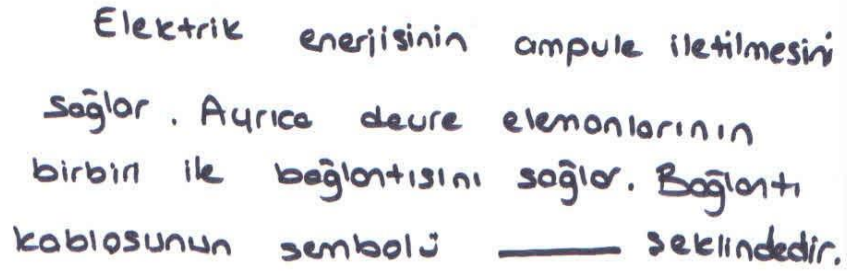 Elektrik enerjisinin ampule iletilmesini
sağlar. Ayrıca devre elemanlarının
birbiri ile bağlantısını sağlar. Bağlantı
kablosunun sembolü ——— şeklindedir.